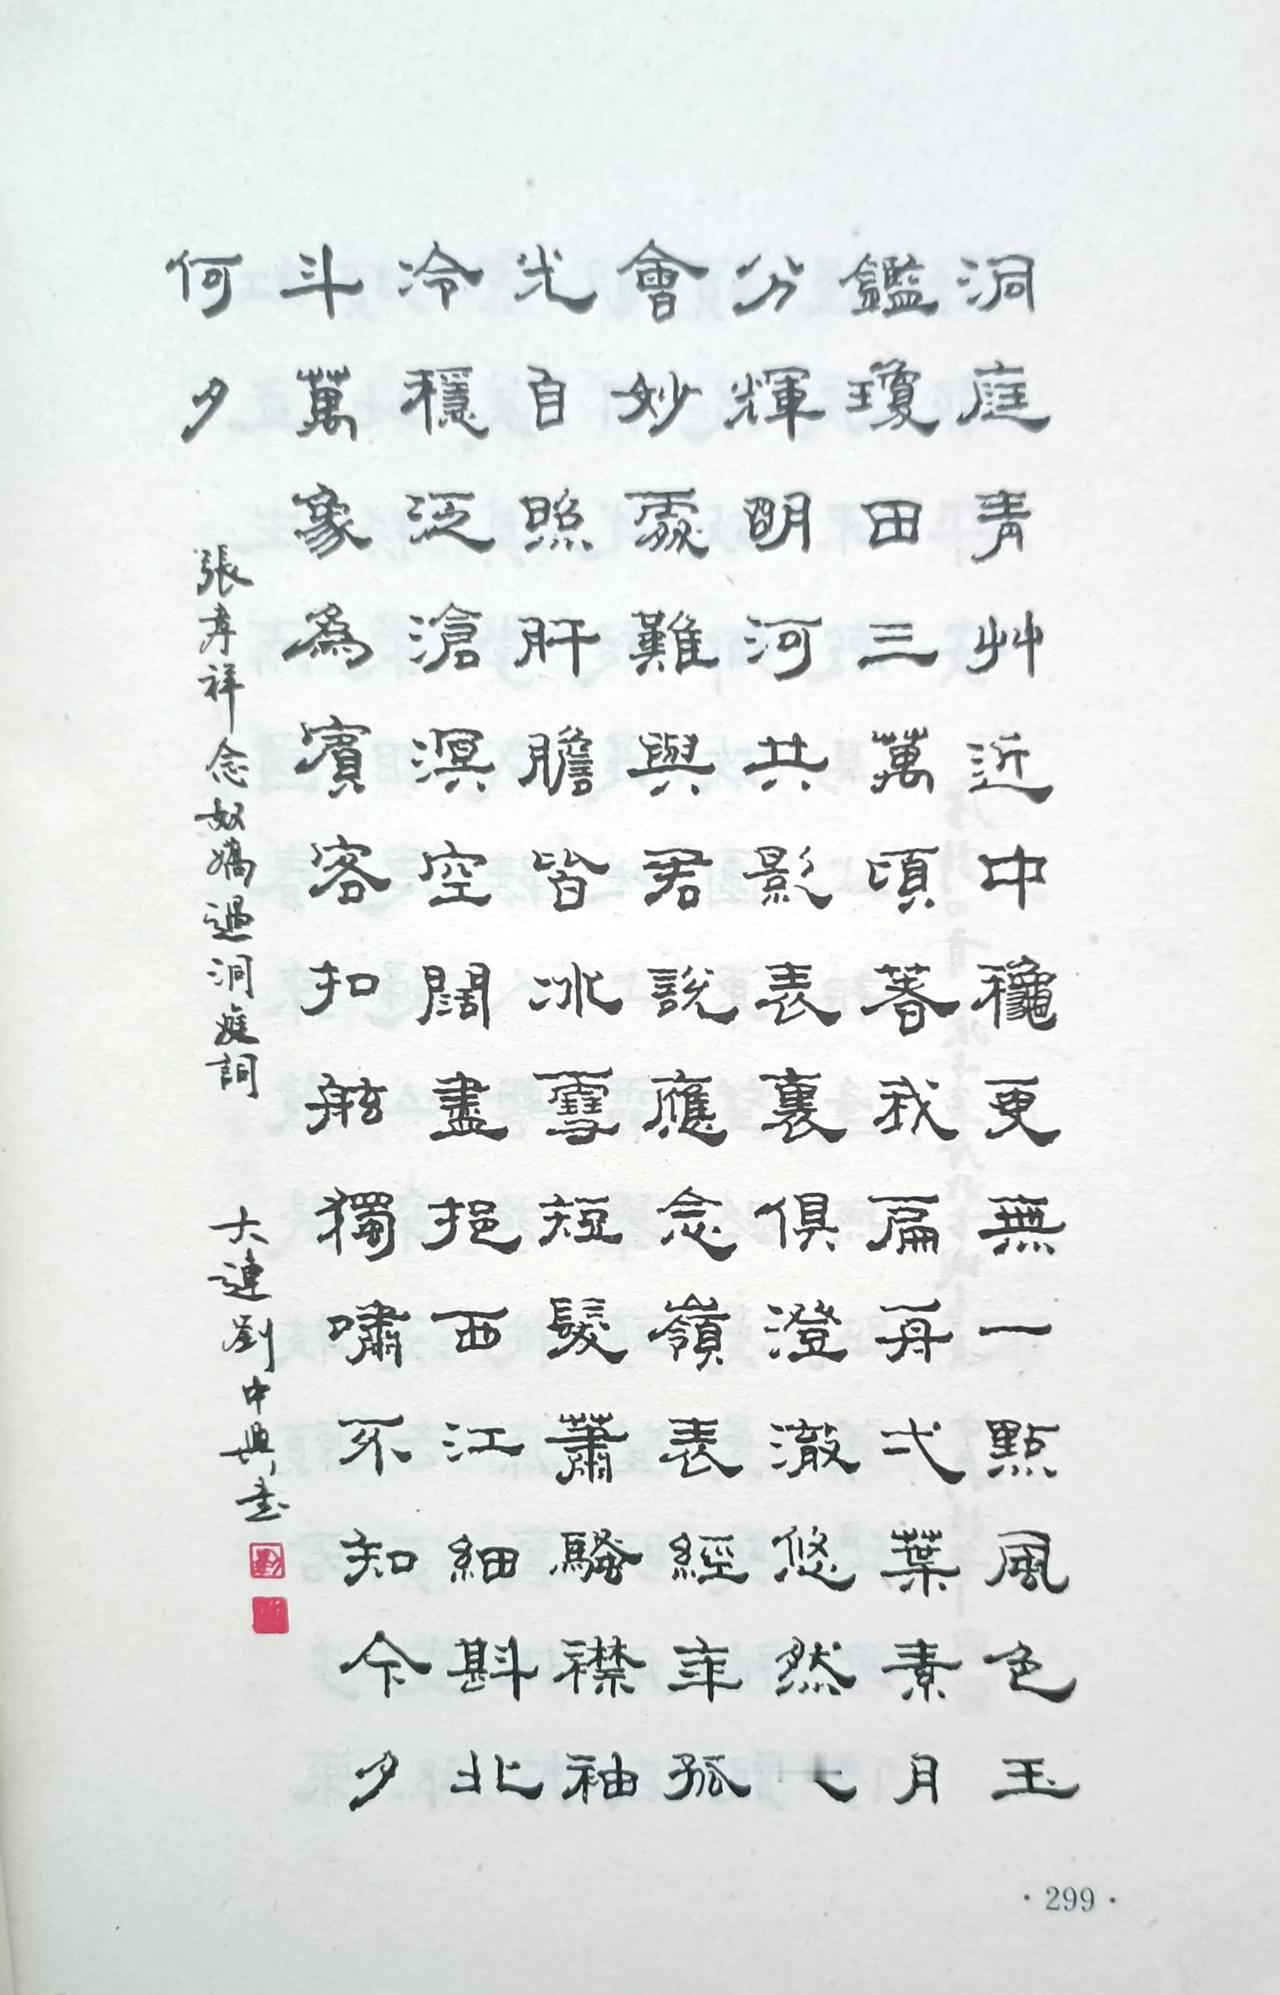 洞庭青艸近中龝更無一點風色玉
鑑瓊田三萬頃著我扁舟弌葉素月
分輝明河共影表裏俱澄澈悠然
會妙處難與君說應念嶺表經年孤
光自照肝膽皆冰雪短髮蕭騷襟袖
冷穩泛滄溟空闊盡挹西江細斟北
斗萬象為賓客扣舷獨嘯不知今夕
何夕
張孝祥念奴嬌過洞庭詞
大連劉中興書
·299·